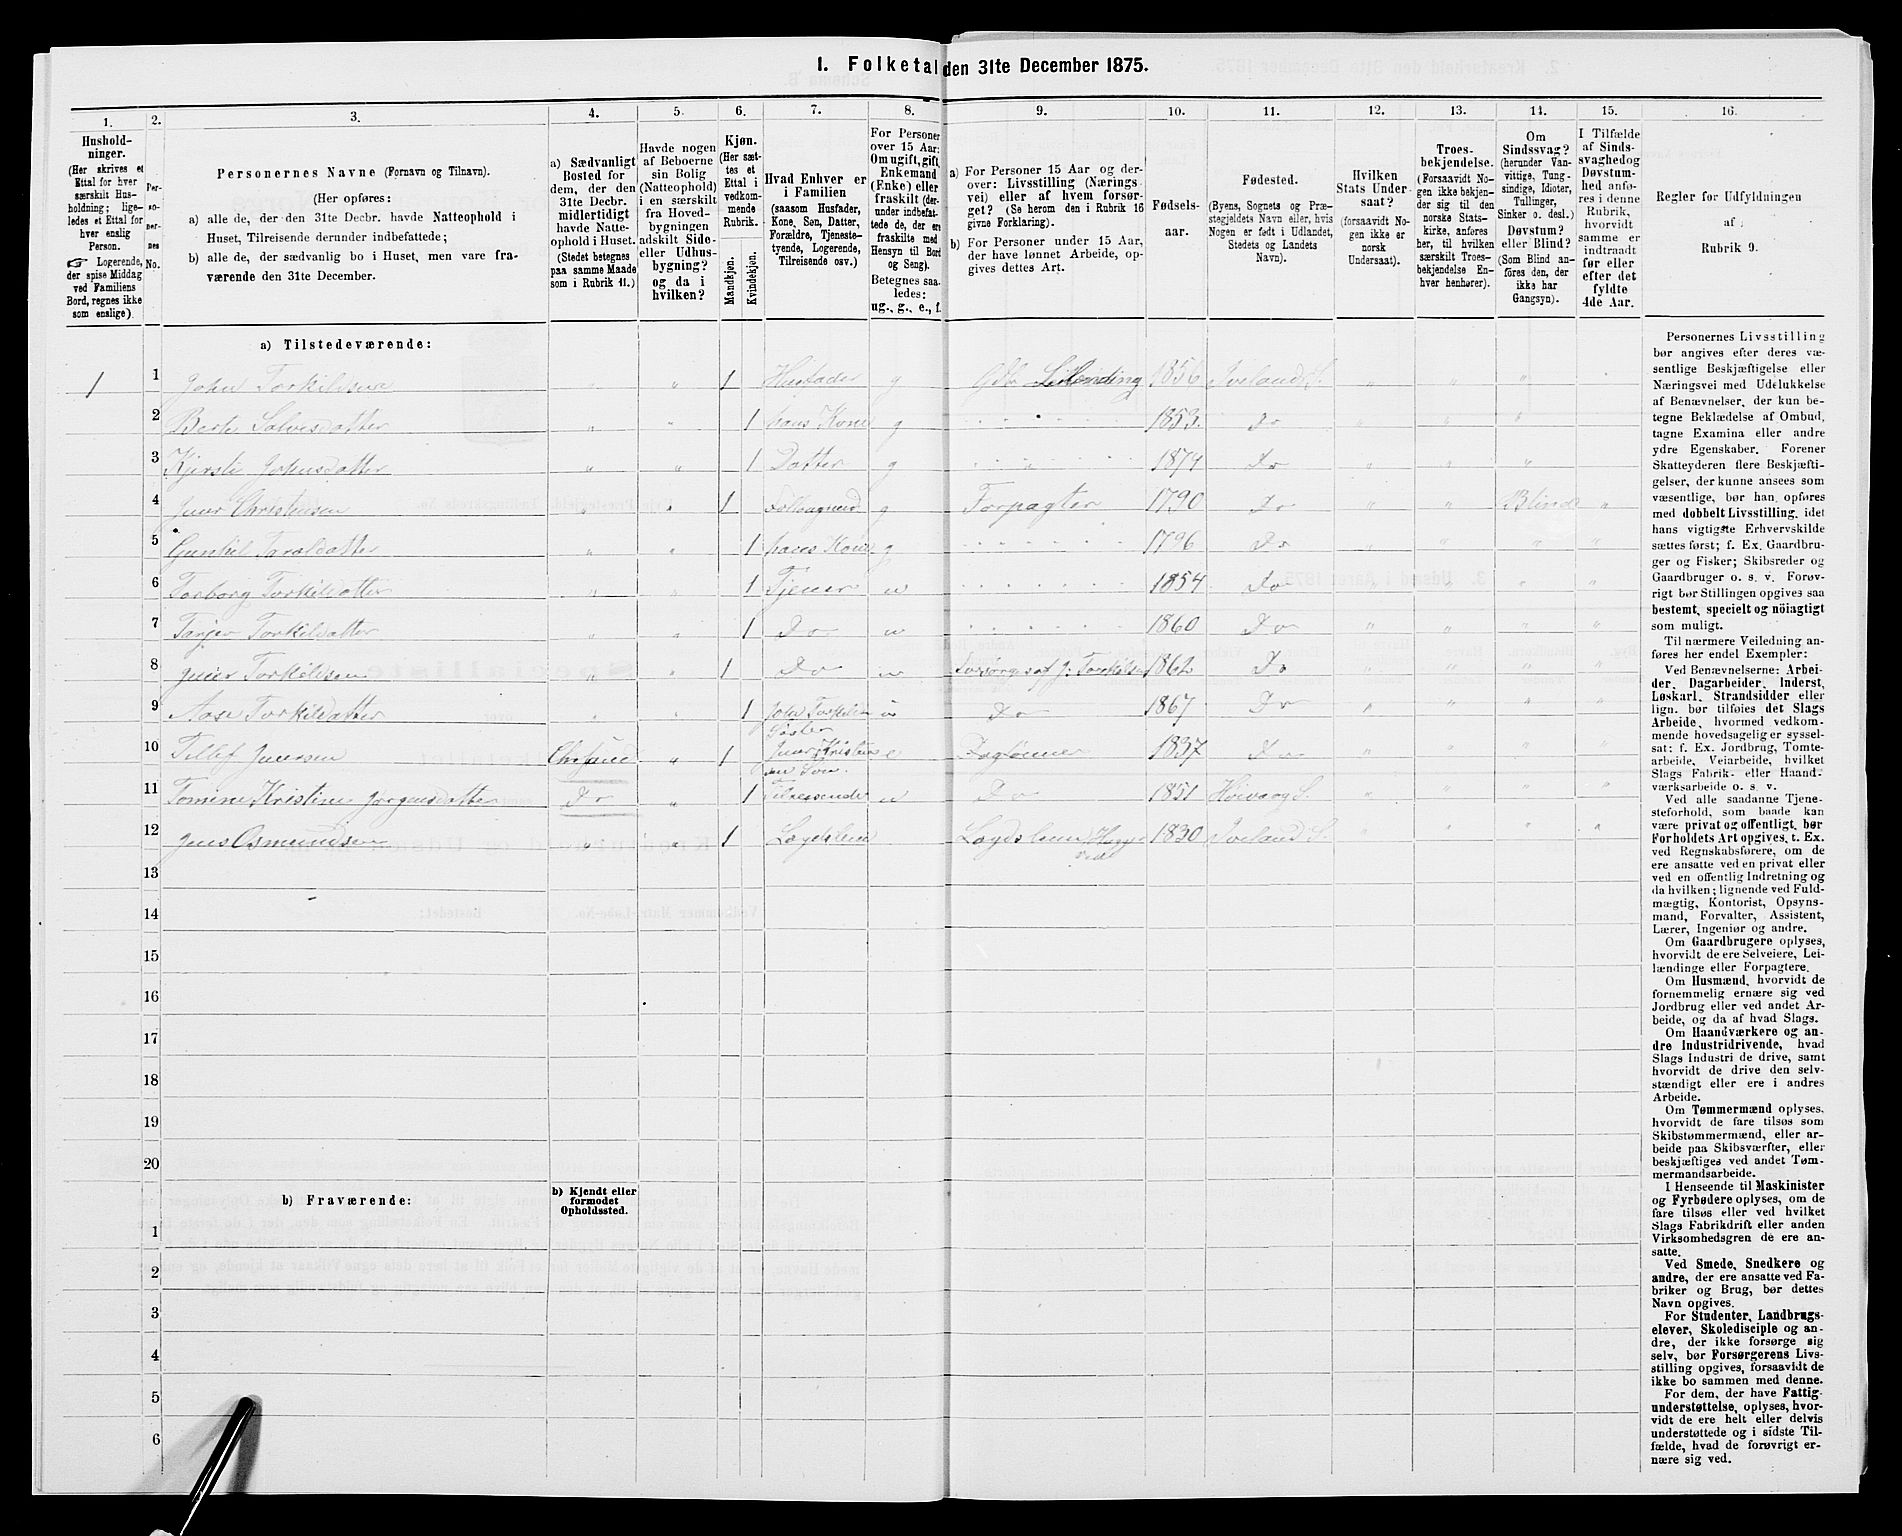 1. Folketal den 31te December 1875.
1.
2.
3.
4.
5.
6.
7.
8.
9.
10.
11.
12.
13.
14.
15.
16.
Hushold-
ninger.
(Her skrives et
Ettal for hver
særskilt Hus-
holdning; lige-
ledes et Ettal for
hver enslig
Person.
☞ Logerende,
der spise Middag
ved Familiens
Bord, regnes ikke
som enslige).
Per-
so-
ner-
nes
No.
Personernes Navne (Fornavn og Tilnavn).
(Her opføres:
a) alle de, der den 31te Decbr. havde Natteophold i
Huset, Tilreisende derunder indbefattede;
b) alle de, der sædvanlig bo i Huset, men vare fra-
værende den 31te December.
a) Sædvanligt
Bosted for
dem, der den
31te Decbr.
midlertidigt
havde Natte-
ophold i Huset.
(Stedet betegnes
paa samme Maade
som i Rubrik 11.)
Havde nogen
af Beboerne
sin Bolig
(Natteophold)
i en særskilt
fra Hoved-
bygningen
adskilt Side-
eller Udhus-
bygning?
og da i
hvilken?
Kjøn.
(Her sæt-
tes et
Ettal i
vedkom-
mende
Rubrik.
Mandkjøn.
Kvindekjøn.
Hvad Enhver er
i Familien
(saasom Husfader,
Kone, Søn, Datter,
Forældre, Tjeneste-
tyende, Logerende,
Tilreisende osv.)
For Personer
over 15 Aar:
Om ugift, gift,
Enkemand
(Enke) eller
fraskilt (der-
under indbefat-
tede de, der ere
fraskilte med
Hensyn til Bord
og Seng).
Betegnes saa-
ledes:
ug., g., e., f.
a) For Personer 15 Aar og der-
over: Livsstilling (Nærings-
vei) eller af hvem forsør-
get? (Se herom den i Rubrik 16
givne Forklaring).
b) For Personer under 15 Aar,
der have lønnet Arbeide, op-
gives dettes Art.
Fødsels-
aar.
Fødested.
(Byens, Sognets og Præ-
stegjeldets Navn eller, hvis
Nogen er født i Udlandet,
Stedets og Landets
Navn).
Hvilken
Stats Under-
saat?
(forsaavidt No-
gen ikke er
norsk
Undersaat).
Troes-
bekjendelse.
(Forsaavidt No-
gen ikke bekjen-
der sig til den
norske Stats-
kirke, anføres
her, til hvilken
særskilt Troes-
bekjendelse En-
hver henhører).
Om
Sindssvag?
(herunder Van-
vittige, Tung-
sindige, Idioter,
Tullinger,
Sinker o. desl.)
Døvstum?
eller Blind?
(Som Blind an-
føres den, der
ikke har
Gangsyn).
I Tilfælde
af Sinds-
svaghed og
Døvstum-
hed anfø-
res i denne
Rubrik,
hvorvidt
samme er
indtraadt
før eller
efter det
fyldte
4de Aar.
Regler for Udfyldningen
af
Rubrik 9.
a) Tilstedeværende:
1 1 John Torkildsen " " 1 Husfader g Gdb Leilending 1856 Iveland S. " " "
2 Berte Salvesdatter " " 1 hans Kone g 1853 Do " " "
3 Kjersti Johnsdatter " " 1 Datter g 1874 Do " " "
4 Christensen " " 1 g Forpagter 1790 Do " " Blind "
5 Gunhil Taraldatter " " 1 hans Kone g 1796 Do " " " "
6 Torborg Torkildatter " " 1 Tjener u 1854 Do " " " "
7 Tarjer Torkildatter " " 1 Do u 1860 Do " " " "
8 Torkildsen " " 1 Do u Forsørges af J. Torkelsen 1862 Do " " " "
9 Aase Torkildatter " " 1 John Torkelsen u Do 1867 Do " " " "
Søster
10 Tellef Jensen " 1 e Dagløner 1837 Do " " " "
Søn.
11 Tomine Kristine Jørgensdatter Do " 1 Tilreisende u Do 1851 Høivaag S. " " " "
12 Jens Osmundsen " " 1 Lægdslem Lægdslem 1830 Iveland S. " " " "
13
14
15
16
17
18
19
20
b) Fraværende:
b) Kjendt eller
formodet
Opholdssted.
1
2
3
4
5
6
Personernes Livsstilling
bør angives efter deres væ-
sentlige Beskjæftigelse eller
Næringsvei med Udelukkelse
af Benævnelser, der kun be-
tegne Beklædelse af Ombud,
tagne Examina eller andre
ydre Egenskaber. Forener
Skatteyderen flere Beskjæfti-
gelser, der kunne ansees som
væsentlige, bør han opføres
med dobbelt Livsstilling, idet
hans vigtigste Erhvervskilde
sættes først; f. Ex. Gaardbru-
ger og Fisker; Skibsreder og
Gaardbruger o. s. v. Forøv-
rigt bør Stillingen opgives saa
bestemt, specielt og nöiagtigt
som muligt.
Til nærmere Veiledning an-
føres her endel Exempler:
Ved Benævnelserne: Arbei-
der, Dagarbeider, Inderst,
Løskarl, Strandsidder eller
lign. bør tilføies det Slags
Arbeide, hvormed vedkom-
mende hovedsagelig er syssel-
sat; f. Ex. Jordbrug, Tomte-
arbeide, Veiarbeide, hvilket
Slags Fabrik- eller Haand-
værksarbeide o. s. v.
Ved alle saadanne Tjene-
steforhold, som baade kan
være privat og offentligt, bør
Forholdets Art opgives, t. Ex.
ved Regnskabsførere, om de
ere ansatte ved en privat eller
ved en offentlig Indretning og
da hvilken; lignende ved Fuld-
mægtig, Kontorist, Opsyns-
mand, Forvalter, Assistent,
Lærer, Ingeniør og andre.
Om Gaardbrugere oplyses,
hvorvidt de ere Selveiere, Lei-
lændinge eller Forpagtere.
Om Husmænd, hvorvidt de
fornemmelig ernære sig ved
Jordbrug eller ved andet Ar-
beide, og da af hvad Slags.
Om Haandværkere og an-
dre Industridrivende, hvad
Slags Industri de drive, samt
hvorvidt de drive den selv-
stændigt eller ere i andres
Arbeide.
Om Tømmermænd oplyses,
hvorvidt de fare tilsøs som
Skibstømmermænd, eller ar-
beide paa Skibsværfter, eller
beskjæftiges ved andet Tøm-
mermandsarbeide.
I Henseende til Maskinister
og Fyrbødere oplyses, om de
fare tilsøs eller ved hvilket
Slags Fabrikdrift eller anden
Virksomhedsgren de ere an-
satte.
Ved Smede, Snedkere og
andre, der ere ansatte ved Fa-
briker og Brug, bør dettes
Navn opgives.
For Studenter, Landbrugs-
elever, Skoledisciple og an-
dre, der ikke forsørge sig
selv, bør Forsørgerens Livs-
stilling opgives, forsaavidt de
ikke bo sammen med denne.
For dem, der have Fattig-
understøttelse, oplyses, hvor-
vidt de ere helt eller delvis
understøttede og i sidste Til-
fælde, hvad de forøvrigt er-
nære sig ved.